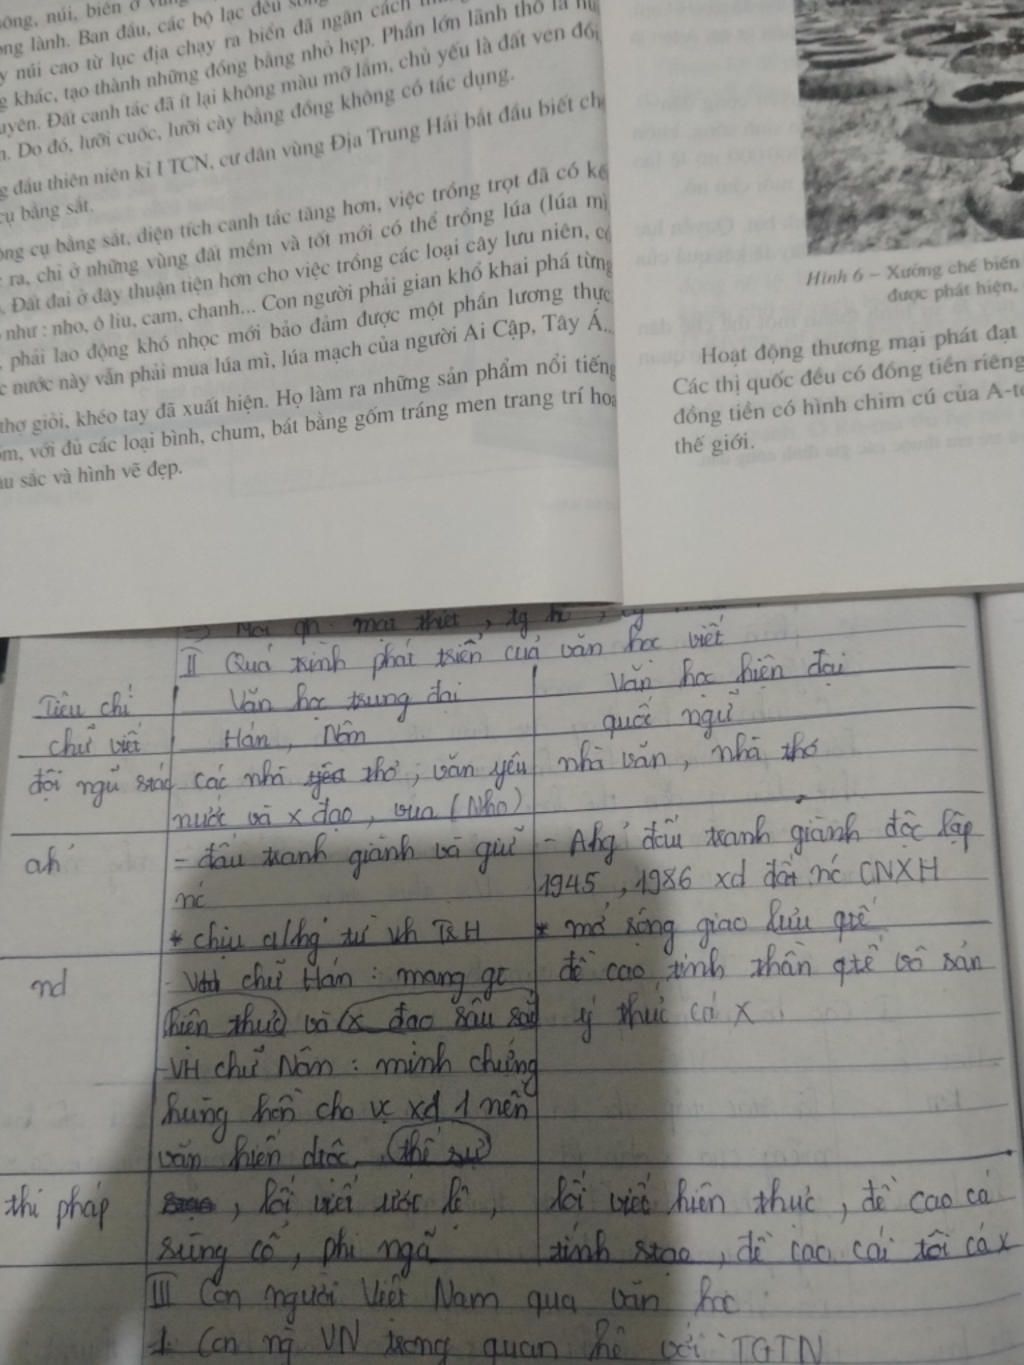 sông, núi, biển ở
trong lành. Ban đầu, các bộ lạc đều
núi cao từ lục địa chạy ra biển đã ngăn cách
khác, tạo thành những đồng bằng nhỏ hẹp. Phần lớn lãnh thổ là
Đất canh tác đã ít lại không màu mỡ lắm, chủ yếu là đất ven đồi
Do đó, lưỡi cuốc, lưỡi cày bằng đồng không có tác dụng.
đầu thiên niên kỉ I TCN, cư dân vùng Địa Trung Hải bắt đầu biết
cụ bằng sắt.
công cụ bằng sắt, diện tích canh tác tăng hơn, việc trồng trọt đã có
ra, chỉ ở những vùng đất mềm và tốt mới có thể trồng lúa (lúa mì
Đất đai ở đây thuận tiện hơn cho việc trồng các loại cây lưu niên, có
như : nho, ô liu, cam, chanh... Con người phải gian khổ khai phá từng
phải lao động khó nhọc mới bảo đảm được một phần lương thực
nước này vẫn phải mua lúa mì, lúa mạch của người Ai Cập, Tây Á...
thợ giỏi, khéo tay đã xuất hiện. Họ làm ra những sản phẩm nổi tiếng
với đủ các loại bình, chum, bát bằng gốm tráng men trang trí hoa
sắc và hình vẽ đẹp.
Hình 6 – Xưởng chế biến
được phát hiện,
Hoạt động thương mại phát đạt
Các thị quốc đều có đồng tiền riêng
đồng tiền có hình chim cú của A-t
thế giới.
II Quá trình phát triển của văn học viết
Tiêu chí Văn học trung đại Văn học hiện đại
chữ viết Hán, Nôm quốc ngữ
đội ngũ stác các nhà thơ, văn yêu nhà văn, nhà thơ
nước và x đạo, vua (Nho)
ah' - đấu tranh giành và giữ - Ahg' đấu tranh giành độc lập
nc 1945, 1986 xd đất nc CNXH
* chịu a/hg' từ vh TQH * mở rộng giao lưu qtế
nd chữ Hán : mang gt đề cao tinh thần qtế vô sản
hiện thực và x đạo sâu sắc ý thức cá x
- VH chữ Nôm : minh chứng
hùng hồn cho vc xd 1 nền
văn hiến độc, thế sự
thi pháp , lối viết ước lệ, lối viết hiện thực, đề cao cá
sùng cổ, phi ngã tính stạo, đề cao cái tôi cá x
III Con người Việt Nam qua văn học
1. Con ng VN trong quan hệ với TGTN